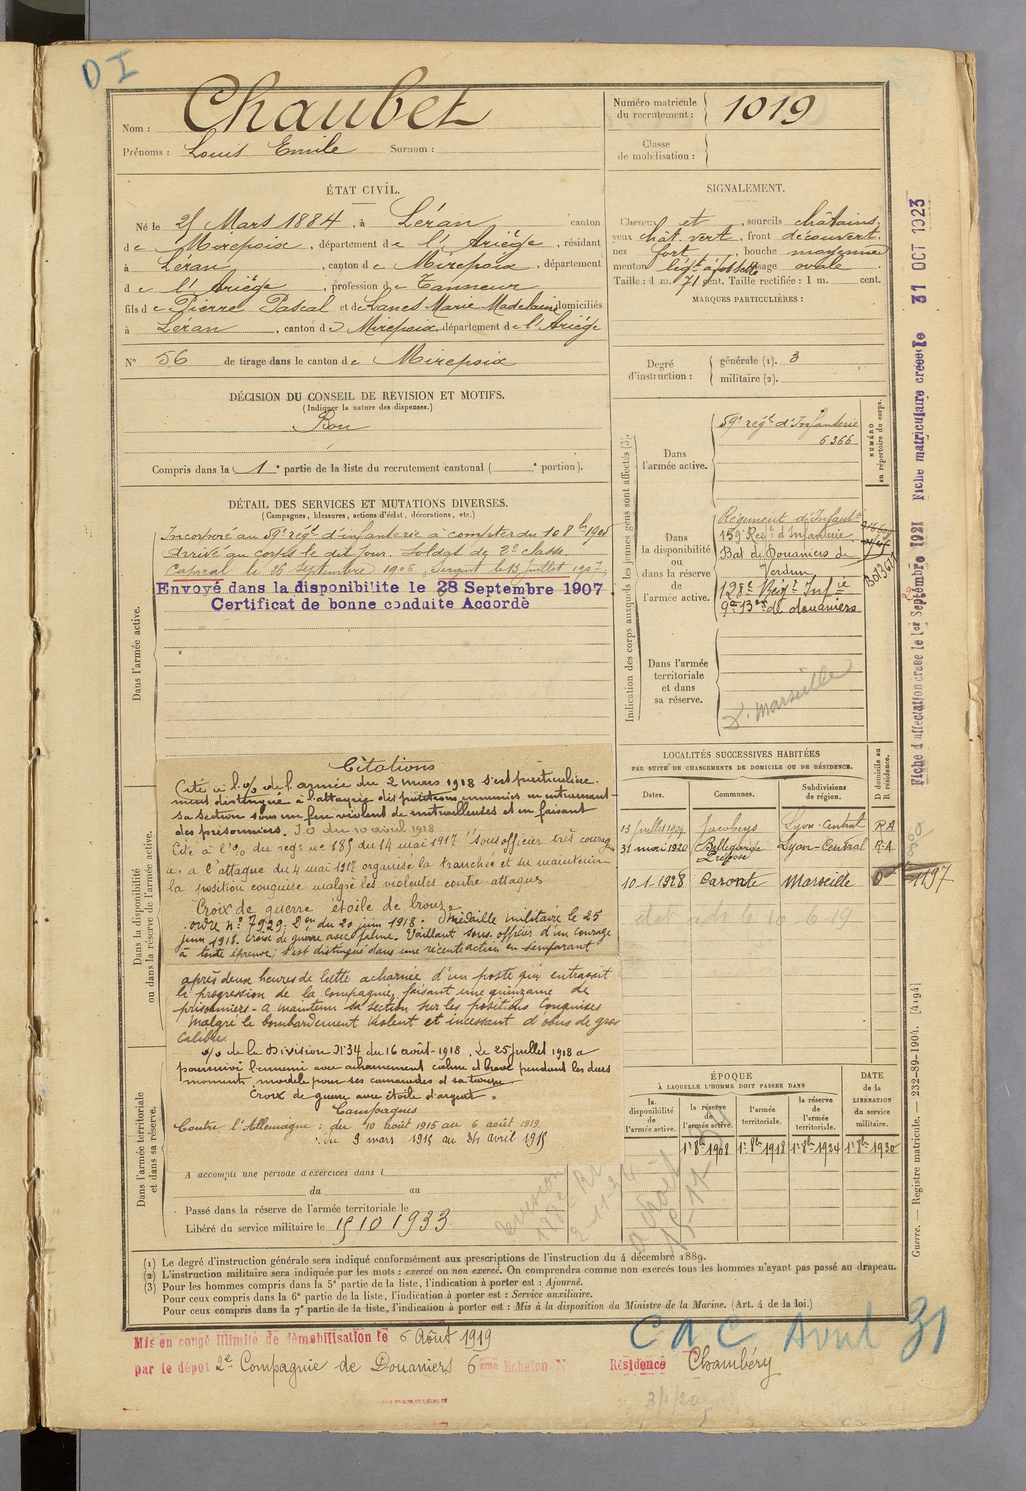 D I
Nom : Chaubet
Prénoms : Louis Emile Surnom :
Numéro matricule
du recrutement : 1019
Classe
de mobilisation :
ÉTAT CIVIL.
Né le 25 Mars 1884, à Léran canton
de Mirepoix, département de l'Ariège, résidant
à Léran, canton de Mirepoix, département
de l'Ariège, profession de Tanneur
fils de Pierre Pascal et de Lanes Marie Madelaine domiciliés
à Léran, canton de Mirepoix, département de l'Ariège
N° 56 de tirage dans le canton de Mirepoix
SIGNALEMENT.
Cheveux et, sourcils châtains,
yeux chât. vert, front découvert,
nez fort, bouche moyenne
menton lég.t à fossette visage ovale.
Taille : 1 m. 71 cent. Taille rectifiée : 1 m. cent.
MARQUES PARTICULIÈRES :
Degré
d'instruction :
générale (1). 3
militaire (2).
DÉCISION DU CONSEIL DE REVISION ET MOTIFS.
(Indiquer la nature des dispenses.)
Bon
Compris dans la 1e partie de la liste du recrutement cantonal ( e portion).
DÉTAIL DES SERVICES ET MUTATIONS DIVERSES.
(Campagnes, blessures, actions d'éclat, décorations, etc.)
Dans l'armée active.
Incorporé au 59e rég.t d'infanterie à compter du 10 8bre 1905
Arrivé au corps le dit jour. Soldat de 2e classe.
Caporal le 26 Septembre 1906, Sergent le 13 juillet 1907.
Envoyé dans la disponibilite le 28 Septembre 1907.
Certificat de bonne conduite Accordé
Indication des corps auxquels les jeunes gens sont affectés (3).
NUMÉRO
au répertoire du corps.
Dans
l'armée active.
59e rég.t d'Infanterie
6366
Dans
la disponibilité
ou
dans la réserve
de
l'armée active.
Régiment d'Infant.ie
159e Reg.t d'Infanterie
Bat de Douaniers de
Verdun
128e Reg.t Inf.ie
9e B.on de douaniers
Dans l'armée
territoriale
et dans
sa réserve.
D. Marseille
Fiche d'affectation creee le 1er Septembre 1921 Fiche matriculaire creee le 31 OCT 1923
LOCALITÉS SUCCESSIVES HABITÉES
PAR SUITE DE CHANGEMENTS DE DOMICILE OU DE RÉSIDENCE.
Dates. Communes. Subdivisions
de région. D domicile ou
R résidence.
13 juillet 1909 Lyon-Central R A
31 mai 1920 Bellegarde Lyon-Central R A
10-1-1928 Caronte Marseille D 1197
Dans la disponibilité
ou dans la réserve de l'armée active.
Citations
Cité à l'o/o de l'armée du 2 mars 1918 s'est particulière-
ment distingué à l'attaque des positions ennemies en entrainant
sa section sous un feu violent de mitrailleuses et en faisant
des prisonniers. J.O du 10 avril 1918
Cité à l'o/o du reg.t n° 185 du 14 mai 1917 "sous officier très courag-
x, à l'attaque du 4 mai 1917 organisé la tranchée et su maintenir
la position conquise malgré les violentes contre attaques
Croix de guerre étoile de bronze
ordre n° 7929 du 20 juin 1918. Médaille militaire le 25
juin 1918. Croix de guerre avec palme. Vaillant sous-officier d'un courage
à toute épreuve, s'est distingué dans une récente action en s'emparant
après deux heures de lutte acharnée d'un poste qui entravait
la progression de la Compagnie, faisant une quinzaine de
prisonniers - a maintenu sa section sur les positions conquises
malgré le bombardement violent et incessant d'obus de gros
calibre.
o/o de la Division N° 34 du 16 août-1918. Le 25 juillet 1918 a
poursuivi l'ennemi avec acharnement calme et brave pendant les durs
moments, modèle pour ses camarades
Croix de guerre avec étoile d'argent.
Dans l'armée territoriale
et dans sa réserve.
Campagnes
Contre l'Allemagne : du 10 août 1915 au 6 août 1919
du 3 mars 1915 au 31 avril 1915
A accompli une période d'exercices dans l
du au
Passé dans la réserve de l'armée territoriale le
Libéré du service militaire le 15 10 1933
ÉPOQUE
À LAQUELLE L'HOMME DOIT PASSER DANS
la
disponibilité
de
l'armée active.
la réserve
de
l'armée active.
l'armée
territoriale.
la réserve
de
l'armée
territoriale.
DATE
de la
LIBÉRATION
du service
militaire.
1er 8bre 1908 1er 8bre 1918 1er 8bre 1924 1er 8bre 1930
Guerre. — Registre matricule. — 232-89-1904. [4194]
(1) Le degré d'instruction générale sera indiqué conformément aux prescriptions de l'instruction du 4 décembre 1889.
(2) L'instruction militaire sera indiquée par les mots : exercé ou non exercé. On comprendra comme non exercés tous les hommes n'ayant pas passé au drapeau.
(3) Pour les hommes compris dans la 5e partie de la liste, l'indication à porter est : Ajourné.
Pour ceux compris dans la 6e partie de la liste, l'indication à porter est : Service auxiliaire.
Pour ceux compris dans la 7e partie de la liste, l'indication à porter est : Mis à la disposition du Ministre de la Marine. (Art. 4 de la loi.)
C a C Avril 31
Mis en congé illimité de démobilisation le 6 Août 1919
par le dépot 2e Compagnie de Douaniers 6eme Echelon N Résidence Chambéry
3/1/20